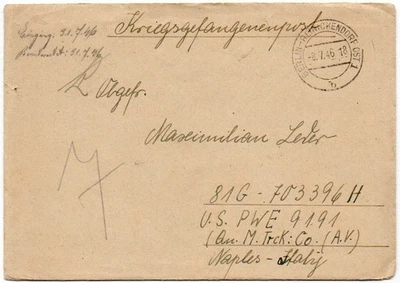 Eingang: 20.7.46
Beantw.: 21.7.46
Kriegsgefangenenpost
BERLIN-REINICKENDORF OST 1
-8.7.46.18
b
Obgefr.
Maximilian Leder
81G - 703396 H
U.S. PWE 9191
(An. M. Trck: Co. (A.V.)
Naples - Italy